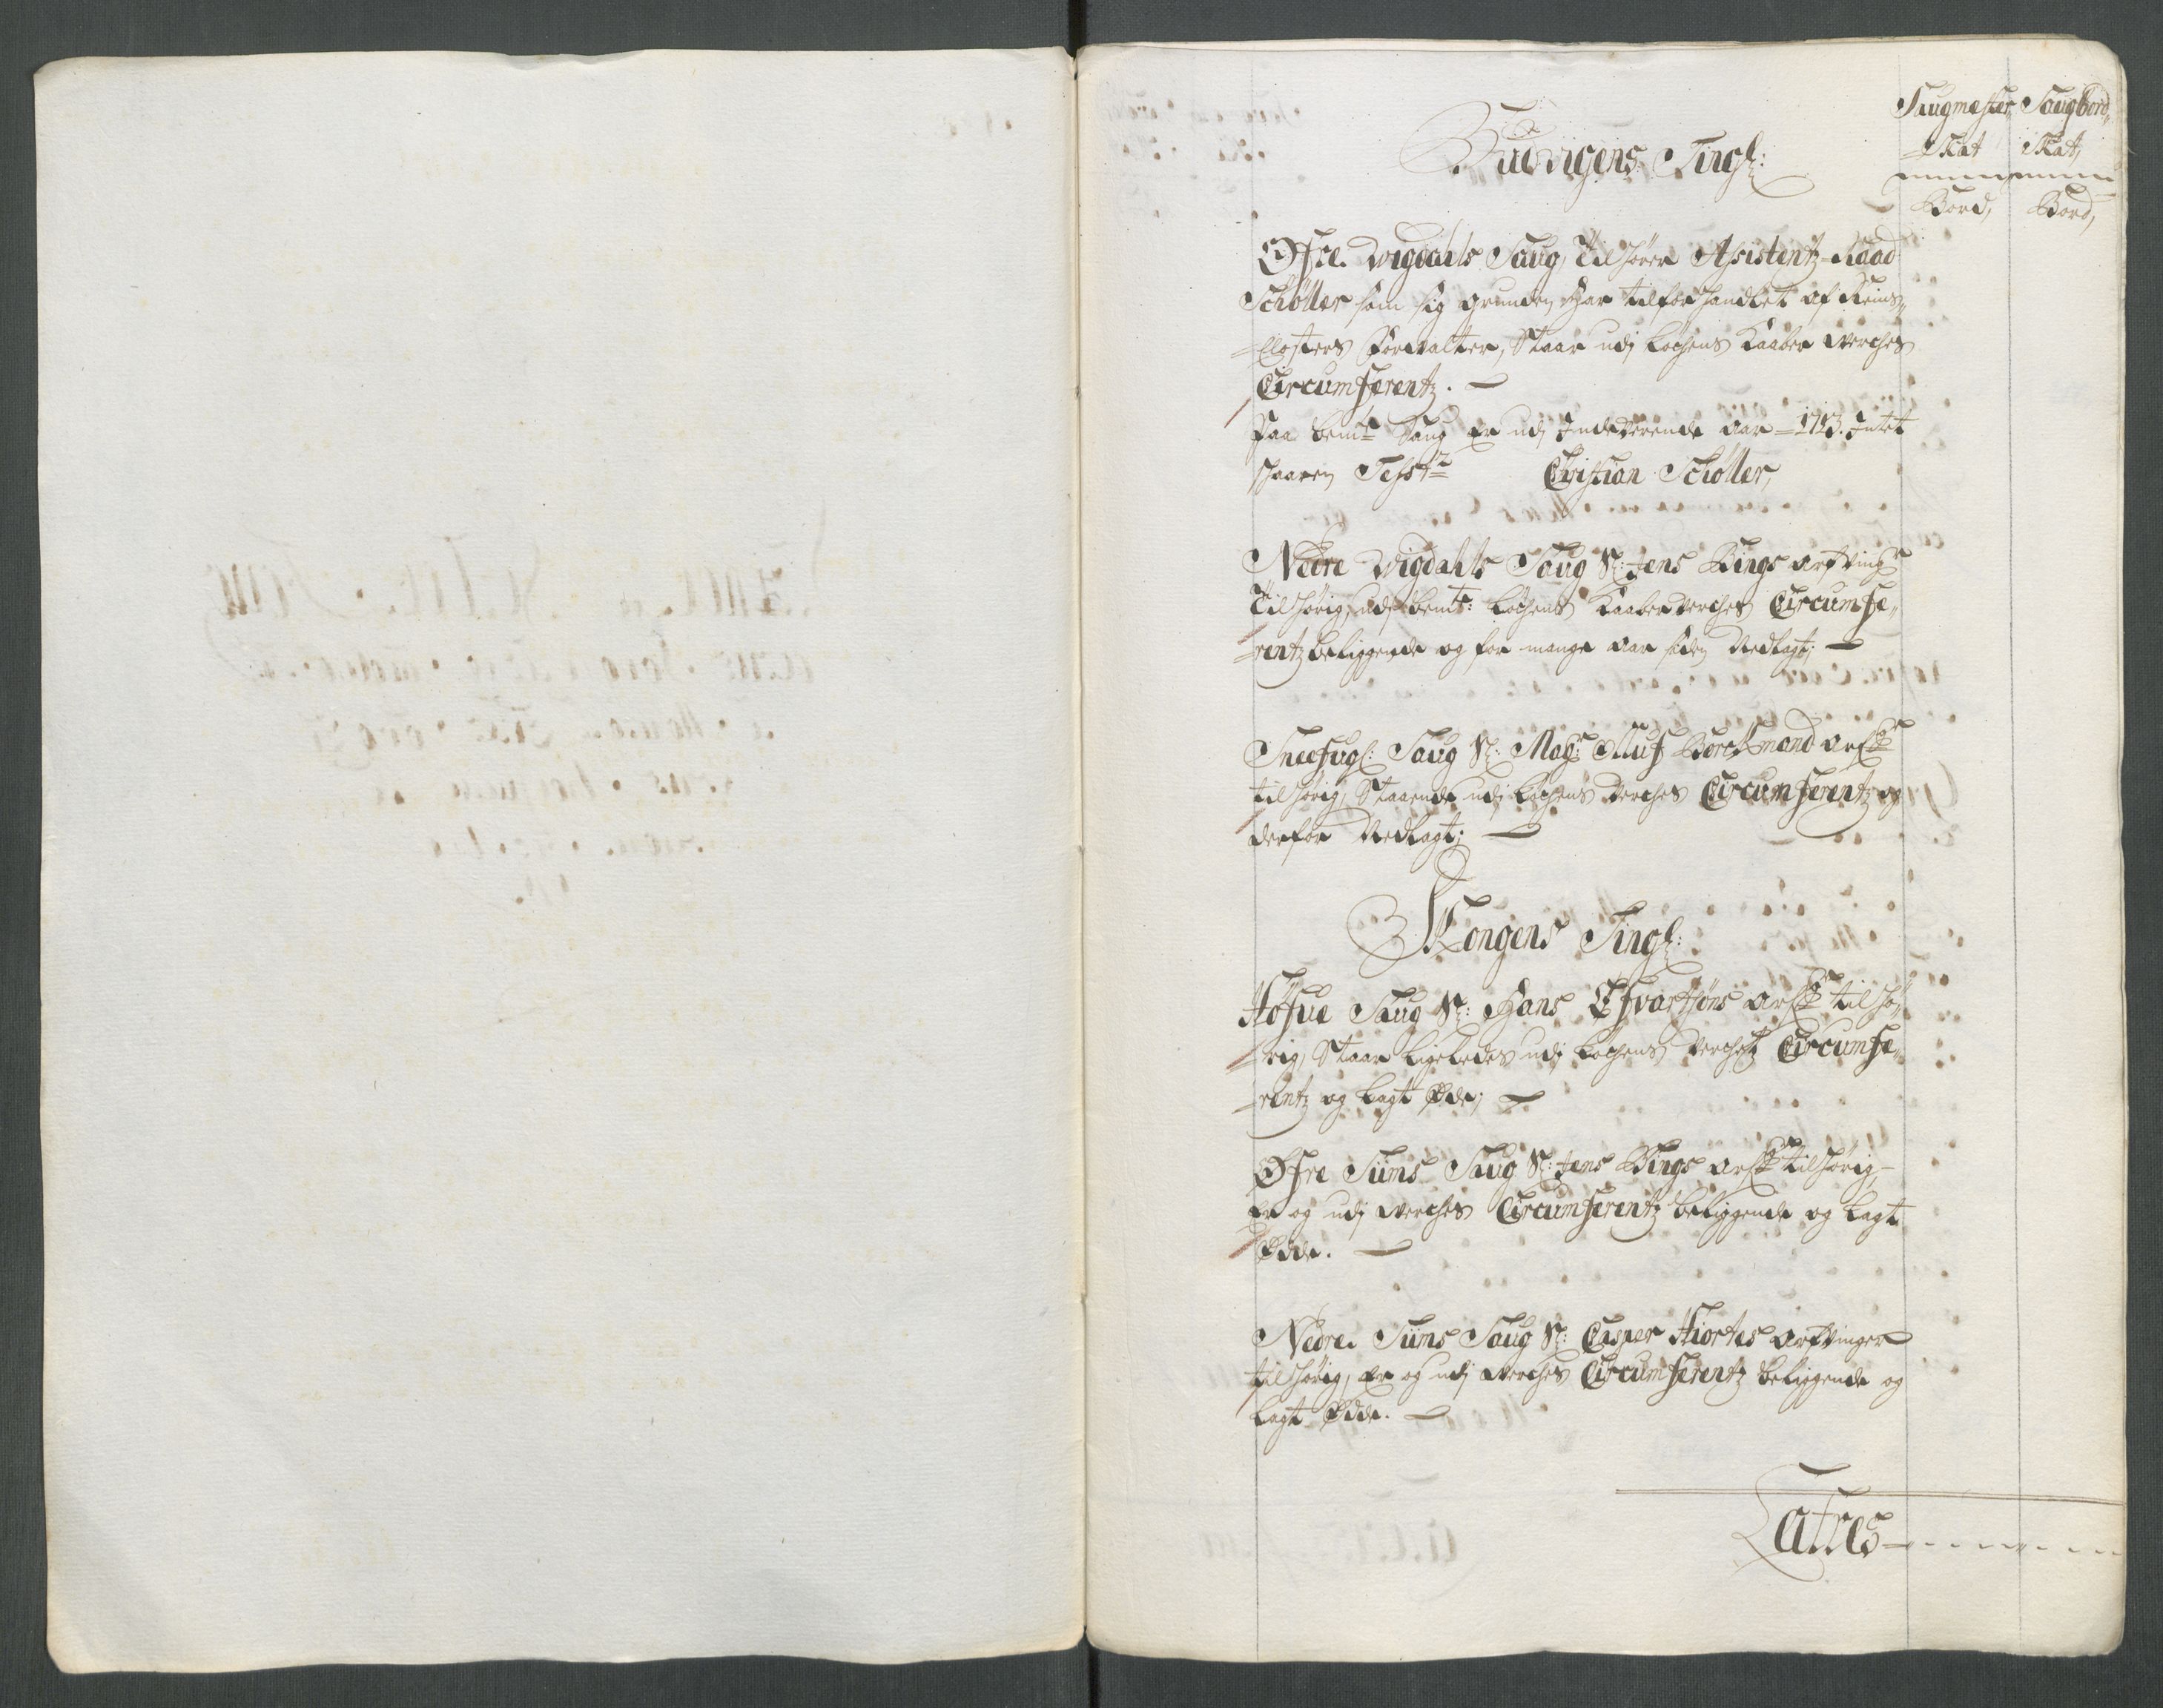 Saugmester Saugbord,,
Skat Skat,
Bord, Bord,
Budvigens Tingl:
Øfre Wigdahls Saug, Tilhører Assistentz-Raad
Schøller som sig grunden har tilforhandlet af Reins,,
Closters Forvalter, Staar udj Løchens Kaaber Werches
Circumferentz.
Paa bemte Saug er udj Indeverende Aar 1713. Intet
schaaren Testr
Cristian Schøller,
Nedre Wigdahls Saug Sl: Jens Bings Arfvingr
Tilhørig, udj bemte: Løchens Kaaberverches Circumfe,,
rentz beliggende og for mange Aar siden Nedlagt;
Sneefugl: Saug Sl: Magr Olluf Borchmand Arfr
tilhørig, Staaende udj Løchens Verches Circumferentz og
derfor Nedlagt;
Schongens Tingl:
Høfue Saug Sl: Hans Efvartsøns Arfr tilhø,,
rig, Staar ligeledes udj Løchens Verchetz Circumfe,,
rentz og lagt Øde;
Øfre Sums Saug Sl: Jens Bings Arfr tilhørig,
er og udj Werches Circumferentz beliggende og lagt
Øde.
Nedre Sums Saug Sl: Casper Hiortes Arfvinger
tilhørig, er og udj Werches Circumferentz beliggende og
lagt Øde.
Latres